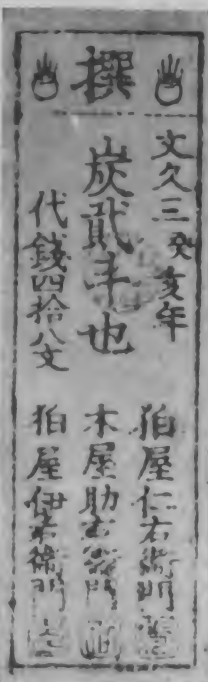 撰
文久三癸亥年
炭貳斗也
代錢四拾八文
狛屋仁右衛門
木屋助右衛門
狛屋伊右衛門